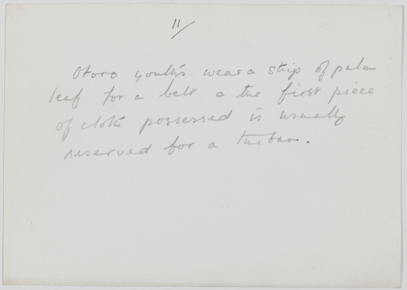 11/
Otoro youths wear a strip of palm
leaf for a belt & the first piece
of cloth possessed is usually
reserved for a turban.